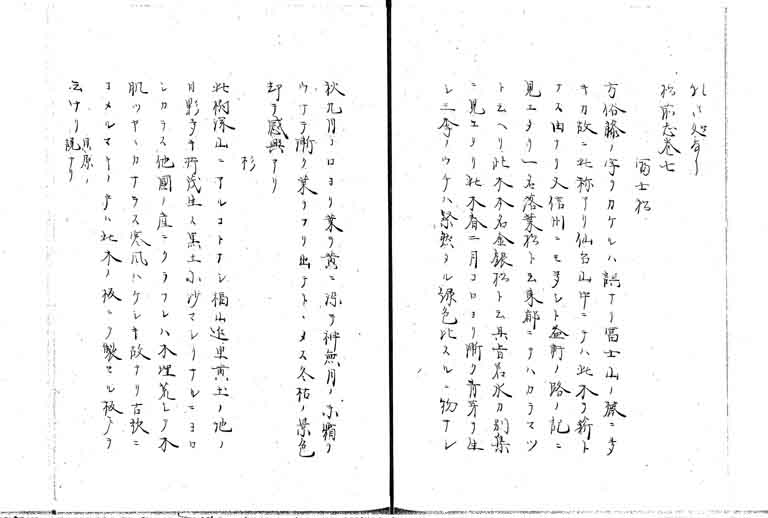 松前志巻七
冨士松
方俗藤ノ字ヲカケルハ誤ナリ冨士山ノ麓ニ多
キカ故ニ此称アリ仙台山中ニテハ此木ヲ薪ト
ナス由ナリ又信州ニモ多シト益軒ノ路ノ記ニ
見エタリ一名落葉松ト云東都ニテハカラマツ
ト云ヘリ此木本名金銭松ト云具 若水カ別集
ニ見エタリ此木春二月コロヨリ漸ク青芽ヲ生
シ三季ノウチハ繁 タル緑色比スルニ物ナシ
秋九月コロヨリ葉ヲ黄ニ染テ神無月ノ末霜ヲ
ウケテ漸ク葉ヲフリ出 ト メス冬枯ノ景色
却テ感興アリ
杉
此樹深山ニアルコトナシ福山近里黄土ノ地ノ
日影多キ所茂生ス黒土小沙マシリナルニヨロ
シカラス他國ノ産ニクラフレハ木理荒シテ木
肌ツヤヽカナラス寒風ハケシキ故ナリ古歌ニ
ヨメルマキノ戸ハ此木ノ板ニテ製セル板戸ヲ
云ケリ 貝原ノ説ナリ